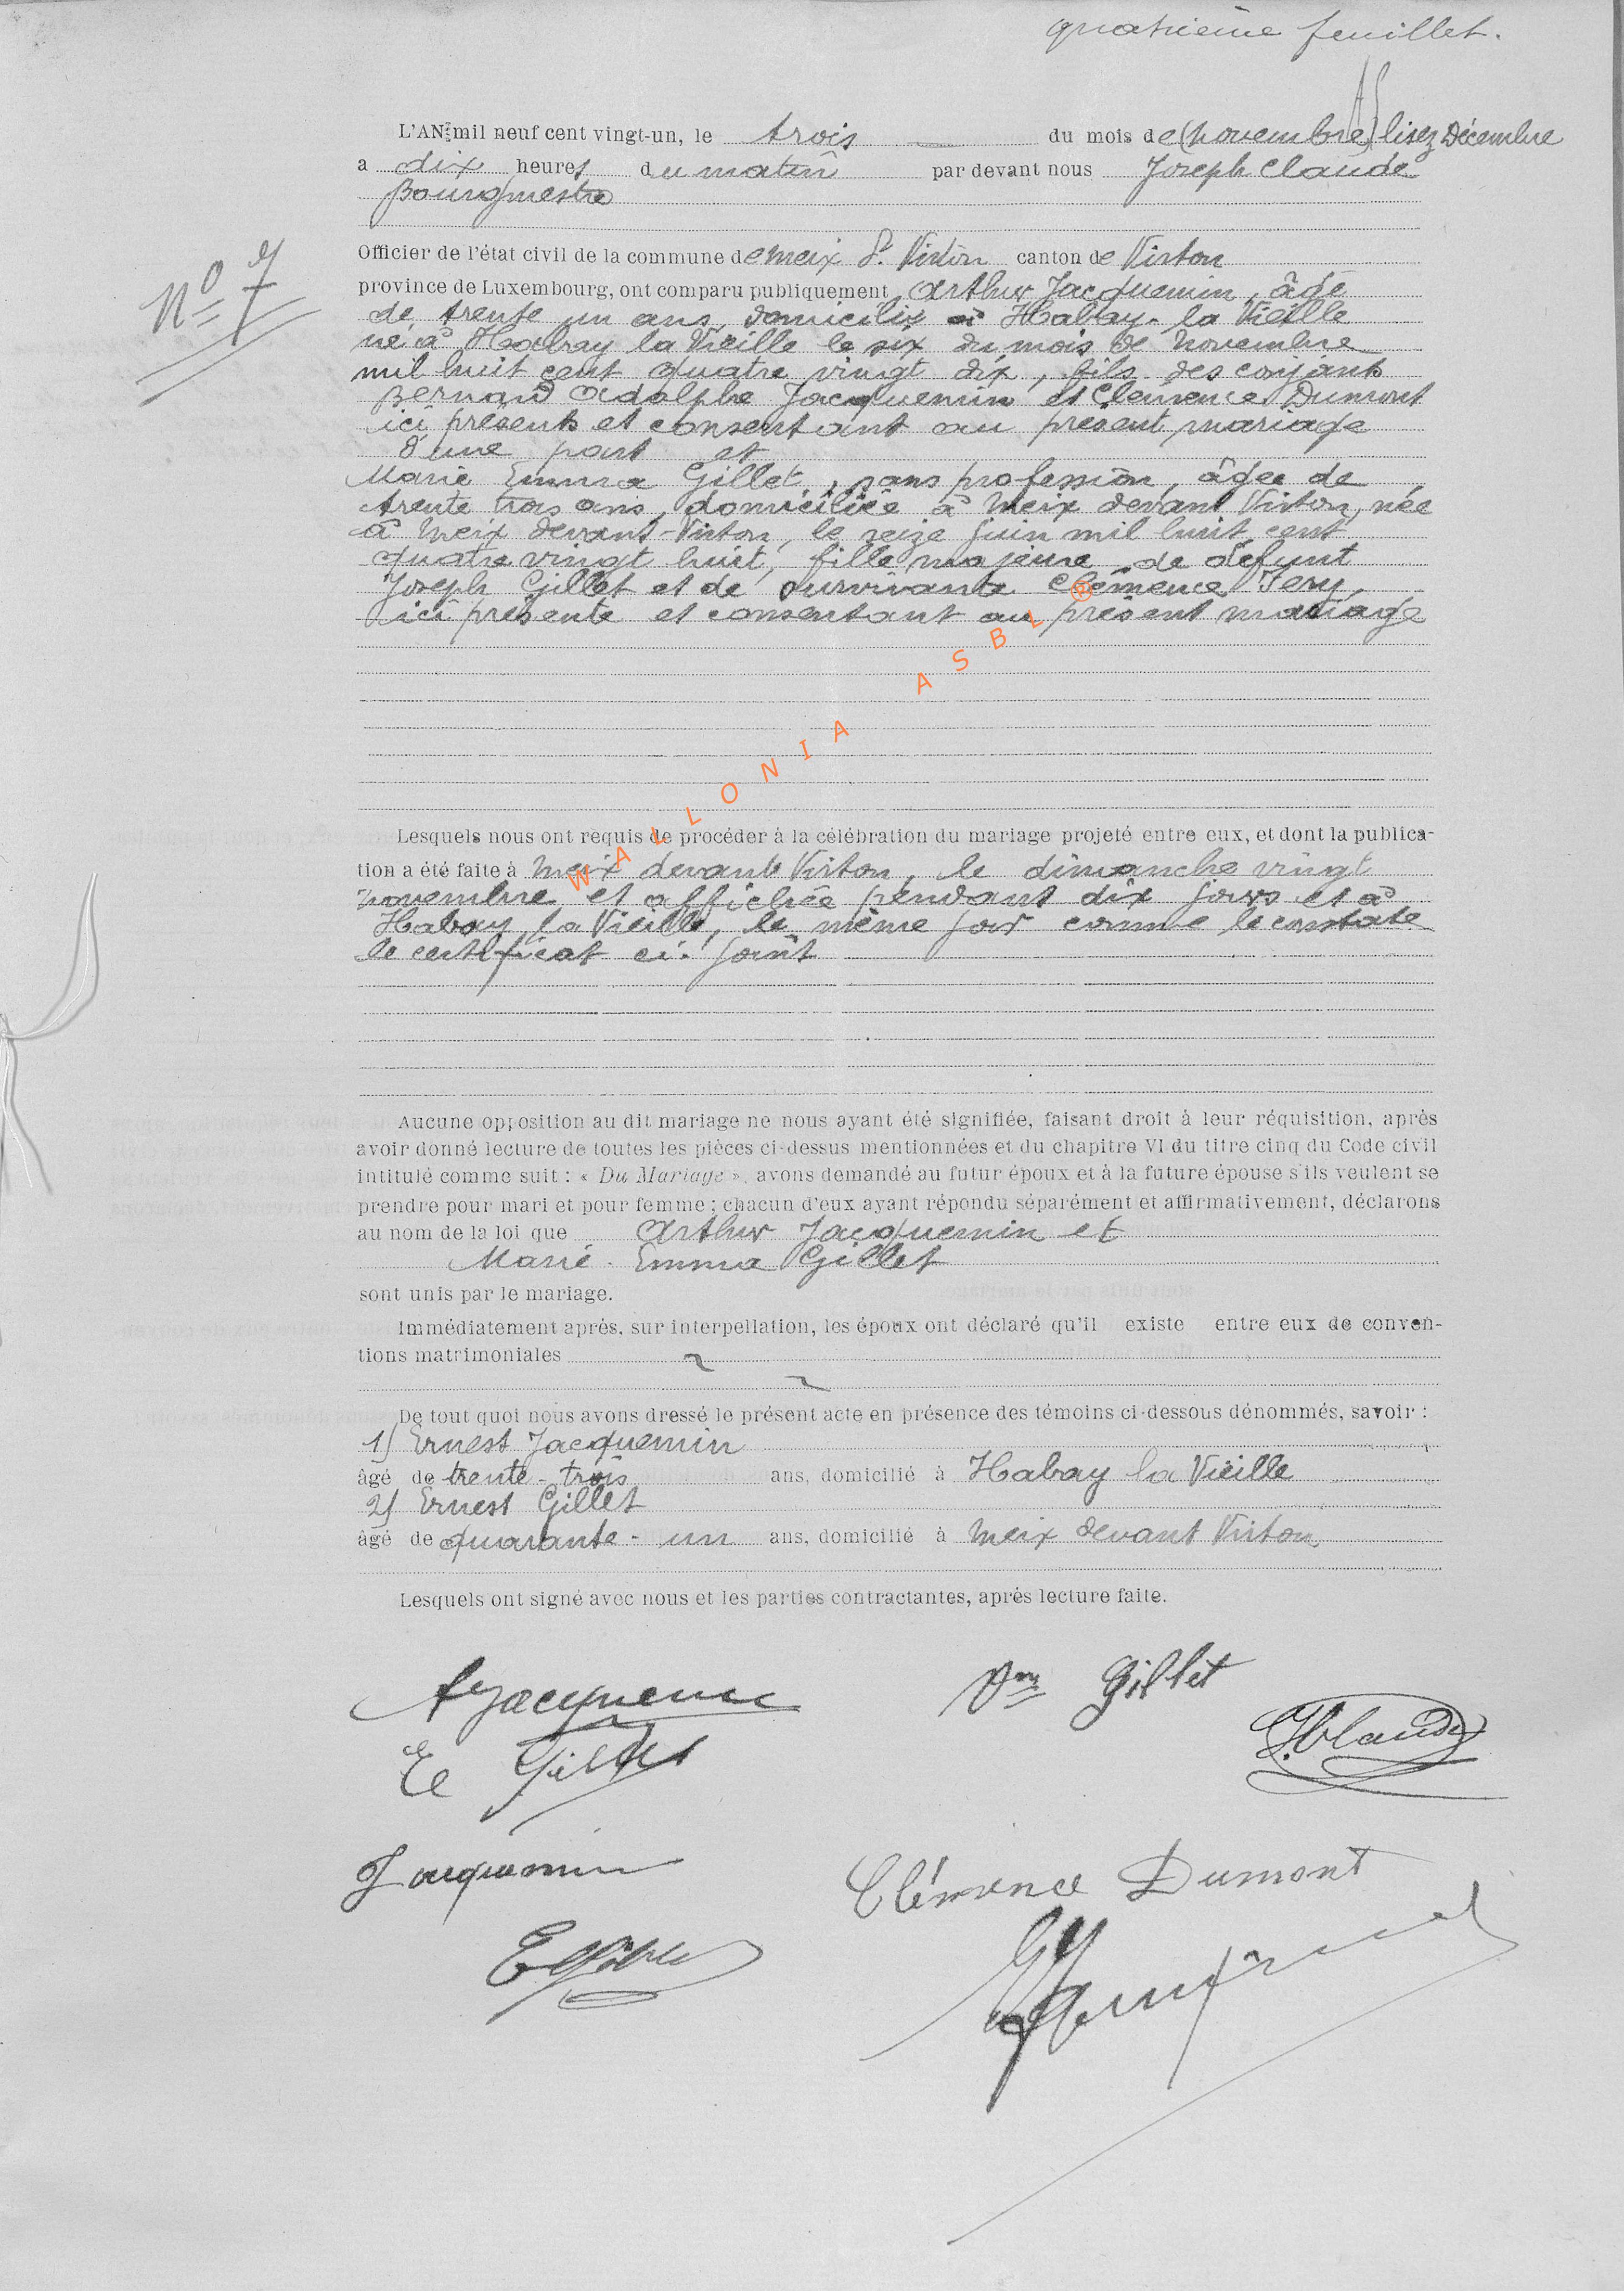 quatrième feuillet.
L'AN mil neuf cent vingt-un, le trois du mois de (novembre) lisez Décembre
a dix heures du matin par devant nous Joseph Claude
Bourgmestre
N° 7
Officier de l'état civil de la commune de Meix d. Virton canton de Virton
province de Luxembourg, ont comparu publiquement Arthur Jacquemin, âgé
de trente un ans, domicilié à Habay-la Vieille
né à Habay la Vieille le six du mois de Novembre
mil huit cent quatre vingt dix, fils des conjoints
Bernard Adolphe Jacquemin et Clémence Dumont
ici présents et consentant au présent mariage
d'une part et
Marie Emma Gillet, sans profession, âgée de
trente trois ans, domiciliée à Meix devant Virton, née
à Meix devant-Virton, le seize juin mil huit cent
quatre vingt huit, fille majeure de défunt
Joseph Gillet et de survivante Clémence
ici présente et consentant au présent mariage
WALLONIA ASBL ®
Lesquels nous ont requis de procéder à la célébration du mariage projeté entre eux, et dont la publica-
tion a été faite à Meix devant Virton, le dimanche vingt
novembre et affichée pendant dix jours et à
Habay la Vieille, le même jour comme le constate
le certificat ci-joint
Aucune opposition au dit mariage ne nous ayant été signifiée, faisant droit à leur réquisition, après
avoir donné lecture de toutes les pièces ci-dessus mentionnées et du chapitre VI du titre cinq du Code civil
intitulé comme suit : « Du Mariage », avons demandé au futur époux et à la future épouse s'ils veulent se
prendre pour mari et pour femme ; chacun d'eux ayant répondu séparément et affirmativement, déclarons
au nom de la loi que Arthur Jacquemin et
Marie-Emma Gillet
sont unis par le mariage.
Immédiatement après, sur interpellation, les époux ont déclaré qu'il existe entre eux de conven-
tions matrimoniales
De tout quoi nous avons dressé le présent acte en présence des témoins ci-dessous dénommés, savoir :
1) Ernest Jacquemin
âgé de trente-trois ans, domicilié à Habay la Vieille
2) Ernest Gillet
âgé de quarante-un ans, domicilié à Meix devant Virton
Lesquels ont signé avec nous et les parties contractantes, après lecture faite.
A Jacquemin
Vve Gillet
J. Claude
E Gillet
Jacquemin
Clémence Dumont